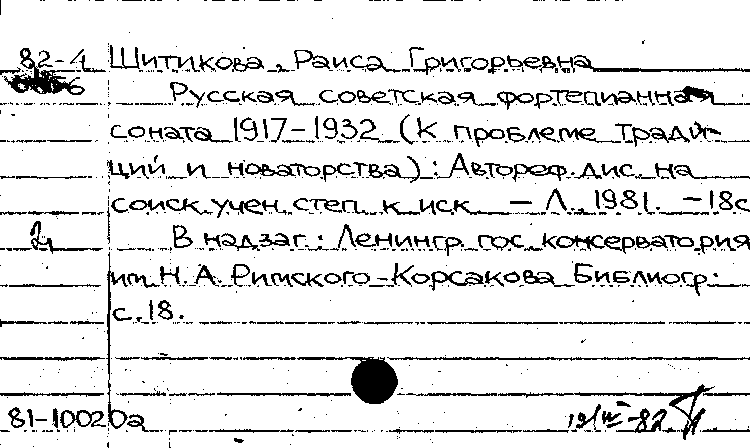 82-4 Шитикова, Раиса Григорьевна
Русская советская фортепианная
соната 1917-1932 (К проблеме тради-
ций и новаторства): Автореф. дис. на
соиск. учен. степ. к. иск. – Л., 1981. – 18с
2 В надзаг.: Ленингр. гос. консерватория
им. Н. А. Римского-Корсакова Библиогр.:
с. 18.
81-10020а